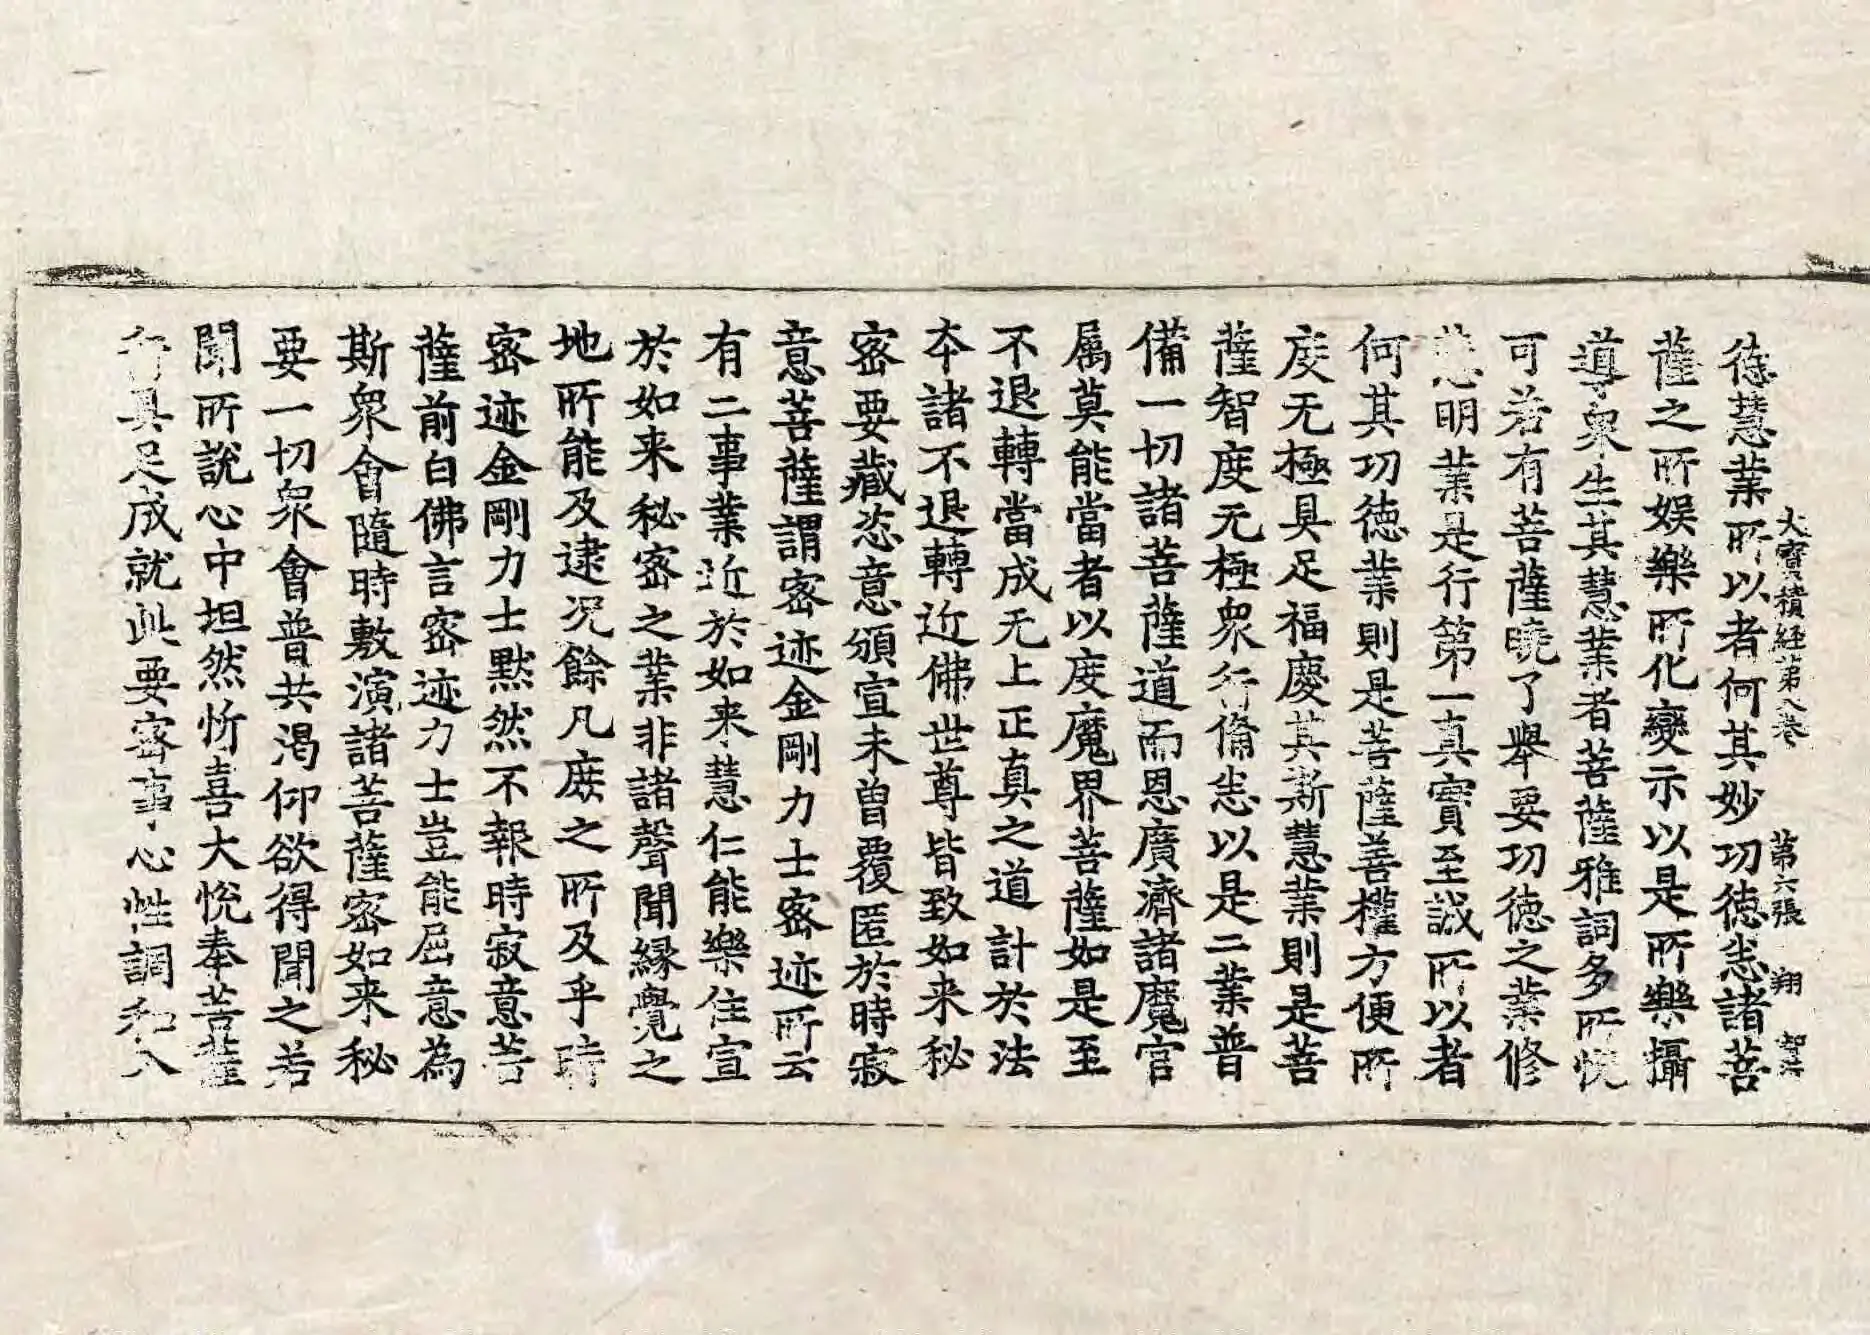 大寳積経第八巻 第六張 翔
徳慧業所以者何其妙功徳恙諸菩
薩之所娯樂所化變示以是所樂攝
導衆生其慧業者菩薩雅詞多所悅
可若有菩薩曉了舉要功徳之業修
慧明業是行第一真實至誠所以者
何其功徳業則是菩薩善權方便所
度无極具足福慶其斯慧業則是菩
薩智度无極衆行備恙以是二業普
備一切諸菩薩道而恩廣濟諸魔官
屬莫能當者以度魔界菩薩如是至
不退轉當成无上正真之道計於法
本諸不退轉近佛世尊皆致如来秘
密要藏恣意頒宣未曽覆匿於時寂
意菩薩謂密迹金剛力士密迹所云
有二事業近於如来慧仁能樂住宣
於如来秘密之業非諸聲聞縁覺之
地所能及逮况餘凡庶之所及乎時
密迹金剛力士黙然不報時寂意菩
薩前白佛言密迹力士豈能屈意為
斯衆會隨時敷演諸菩薩密如来秘
要一切衆會普共渇仰欲得聞之若
聞所說心中坦然忻喜大悅奉菩薩
行具足成就此要密事心性調和入